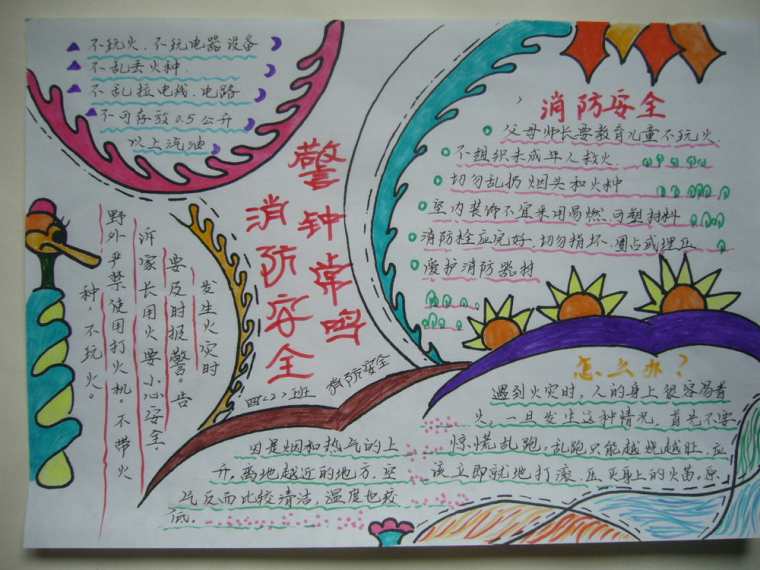 不玩火、不玩电器设备
不乱丢火种.
不乱拉电线、电路
不可存放0.5公升
以上汽油
警钟常鸣
消防安全
四〈2〉班
消防安全
消防安全
父母师长要教育儿童不玩火
不组织未成年人救火.
切勿乱扔烟头和火种
室内装饰不宜采用易燃、可塑材料
消防栓应完好,切勿损坏、圈占或埋压
爱护消防器材
发生火灾时
要及时报警。告
诉家长用火要小心安全.
野外严禁使用打火机。不带火
种,不玩火。
因是烟和热气的上
升。离地越近的地方.空
气反而比较清洁,温度也较
低。
怎么办？
遇到火灾时,人的身上很容易着
火。一旦发生这种情况,首先不要
惊慌乱跑。乱跑只能越烧越旺.应
该立即就地打滚.压灭身上的火苗。原